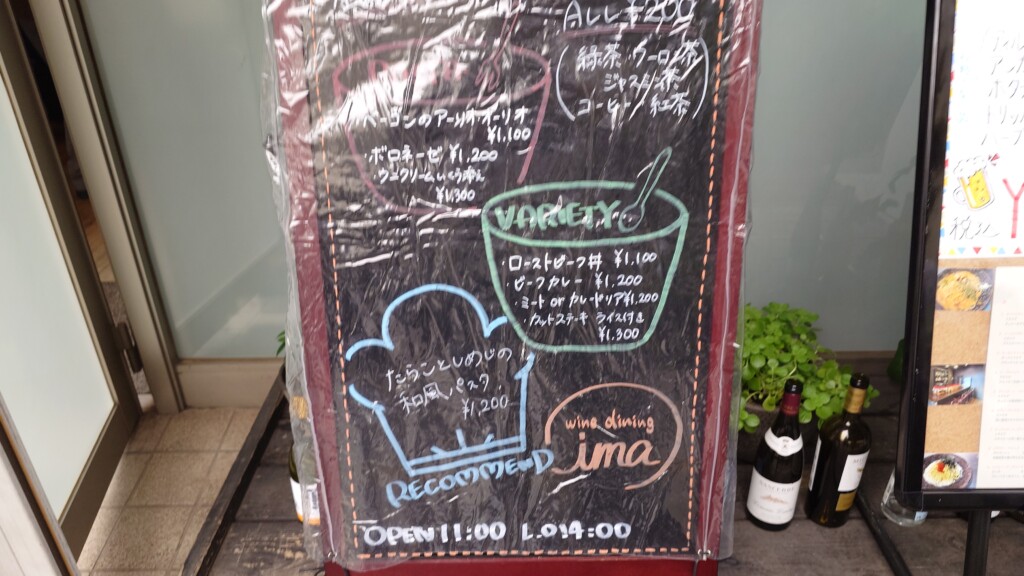 ALL ¥200
(緑茶・ウーロン茶
ジャスミン茶
コーヒー/紅茶)
ベーコンのアーリオオーリオ
¥1,100
・ボロネーゼ ¥1,200
¥1,300
VARIETY
・ローストビーフ丼 ¥1,100
・ビーフカレー ¥1,200
・ミート or カレードリア ¥1,200
・カットステーキ ライス付き
¥1,300
たらことしめじの
和風パスタ
¥1,200
RECOMMEND
wine dining
ima
OPEN 11:00 L.O 14:00